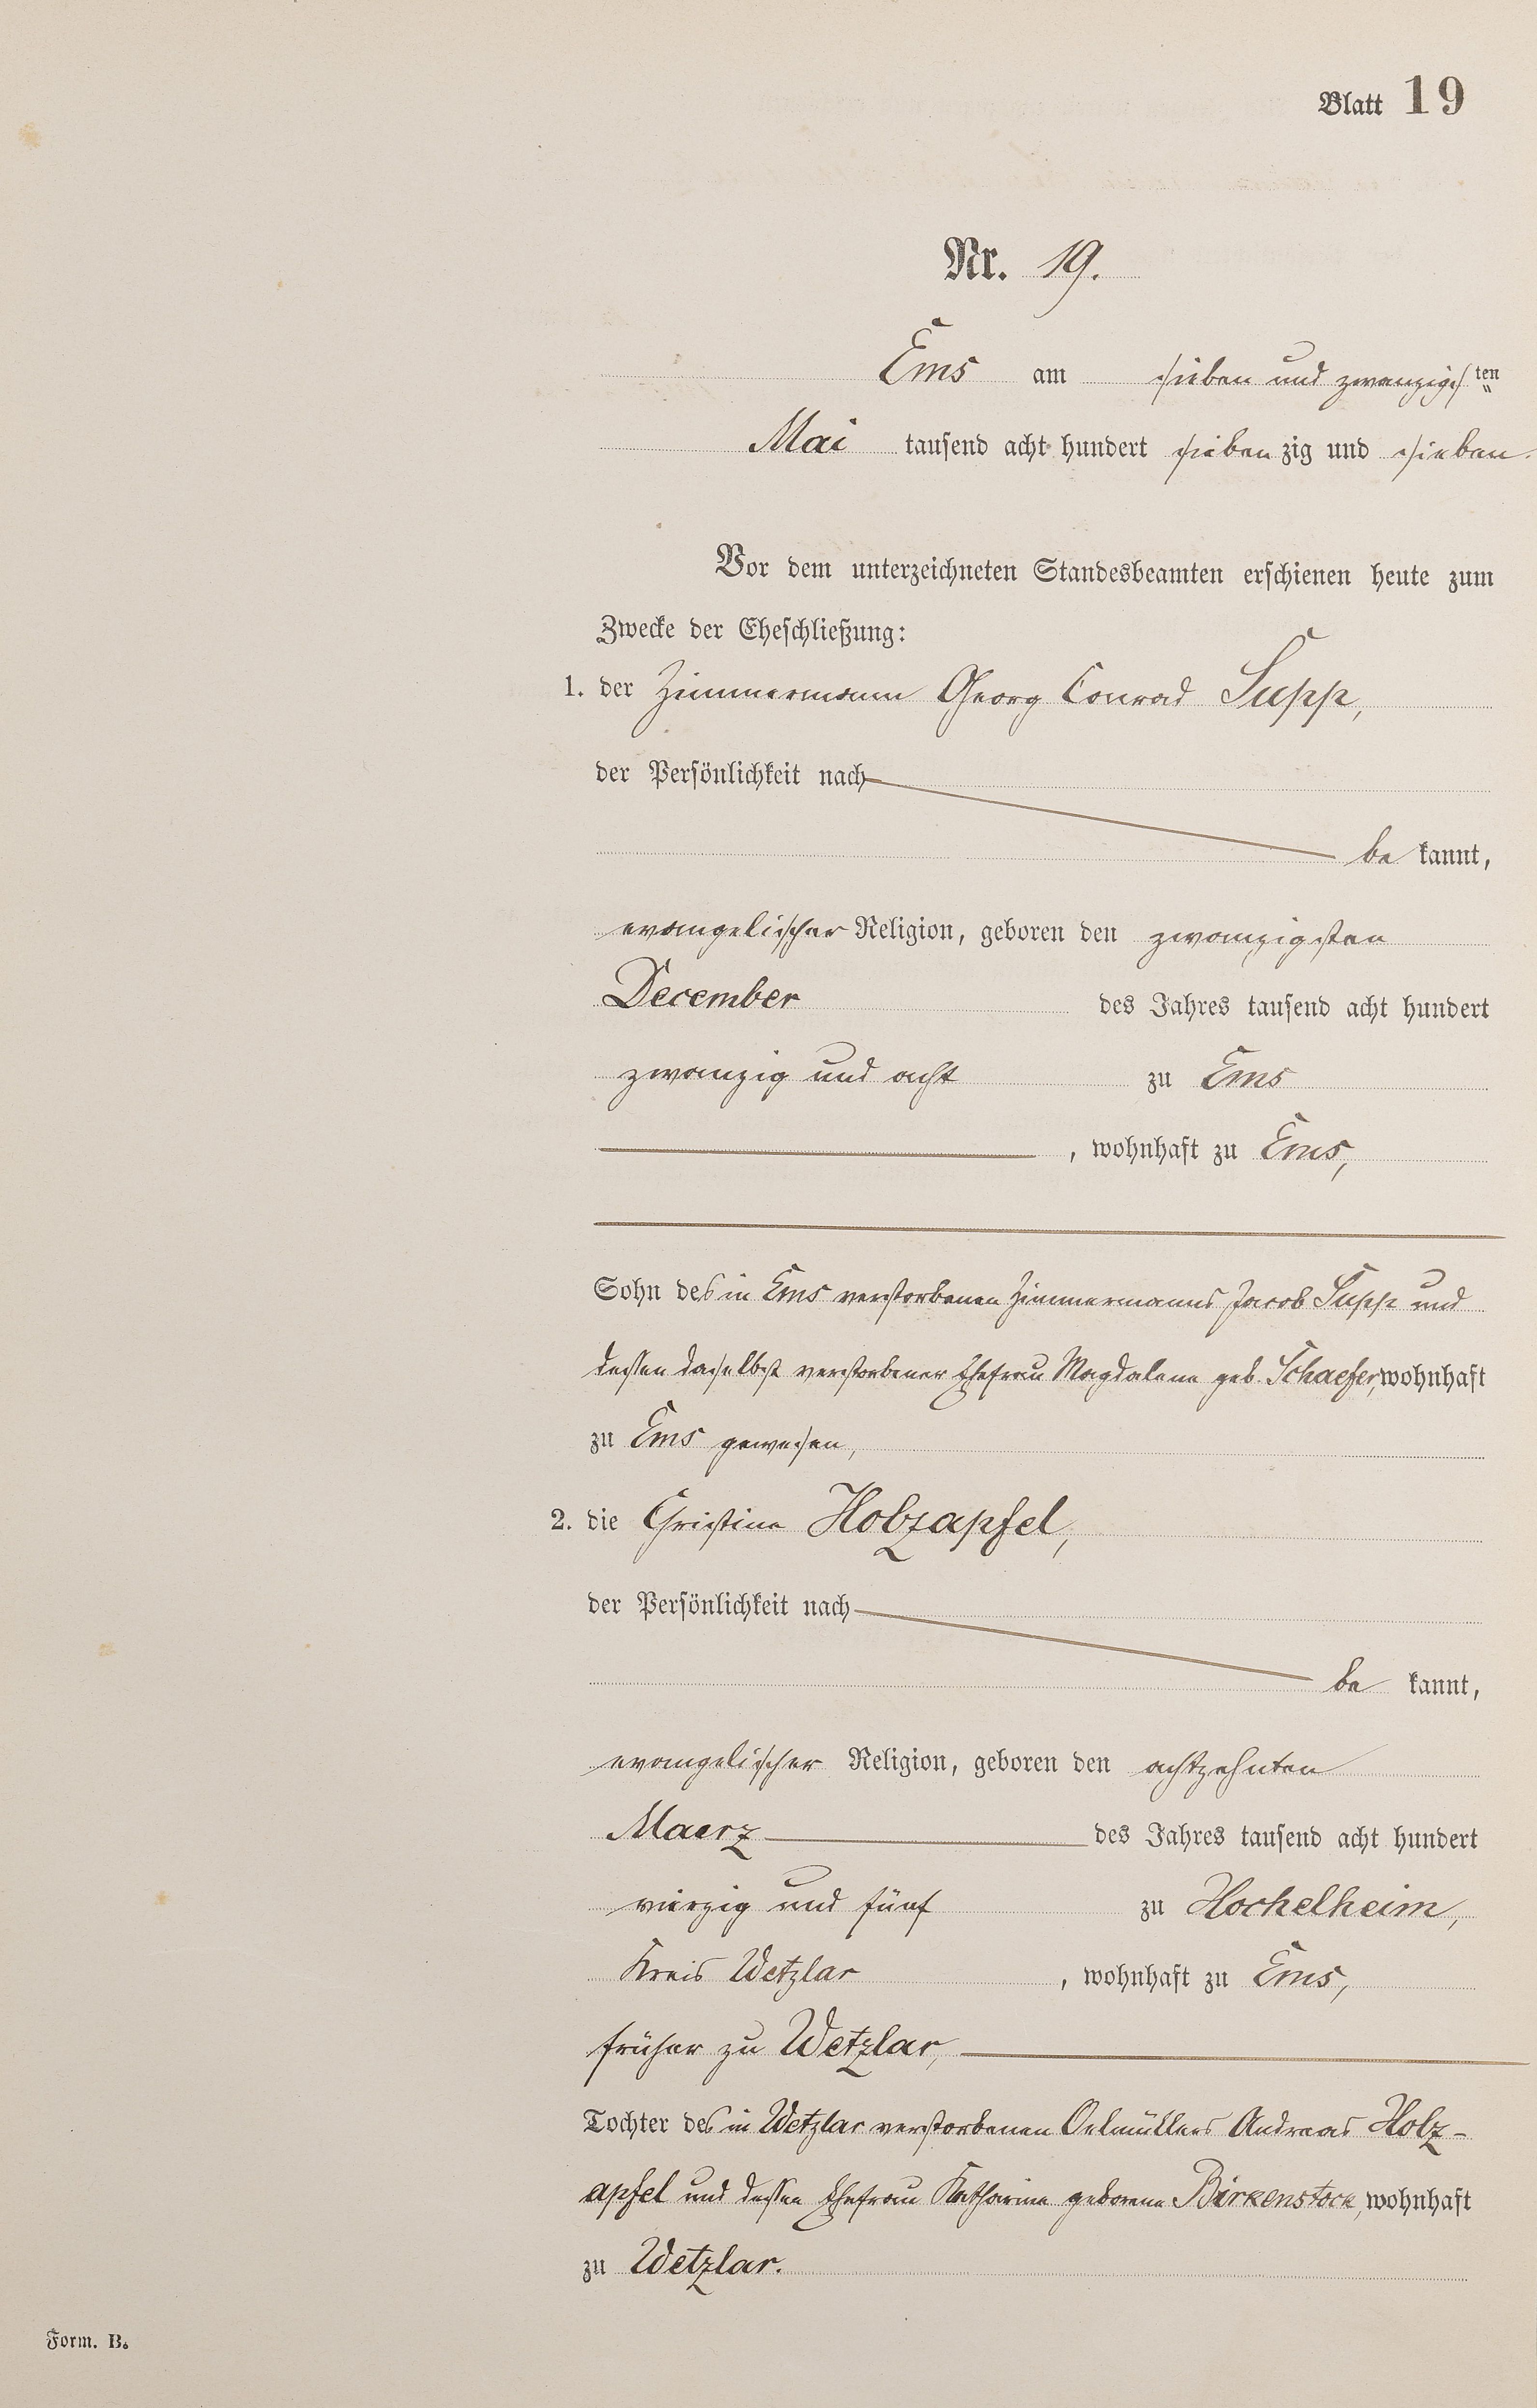 Blatt 19
Nr. 19.
Ems am sieben und zwanzigsten
Mai tausend acht hundert siebenzig und sieben.
Vor dem unterzeichneten Standesbeamten erschienen heute zum
Zwecke der Eheschließung:
1. der Zimmermann Georg Conrad Supp,
der Persönlichkeit nach
be kannt,
evangelischer Religion, geboren den zwanzigsten
December des Jahres tausend acht hundert
zwanzig und acht zu Ems
, wohnhaft zu Ems,
Sohn des in Ems verstorbenen Zimmermanns Jacob Supp und
dessen daselbst verstorbener Ehefrau Magdalena geb. Schaefer, wohnhaft
zu Ems gewesen,
2. die Christine Holzapfel,
der Persönlichkeit nach
be kannt,
evangelischer Religion, geboren den achtzehnten
Maerz des Jahres tausend acht hundert
vierzig und fünf zu Hochelheim,
Kreis Wetzlar, wohnhaft zu Ems,
früher zu Wetzlar,
Tochter des in Wetzlar verstorbenen Oelmüllers Andreas Holz-
apfel und dessen Ehefrau Katharina geborene Birkenstock, wohnhaft
zu Wetzlar.
Form. B.